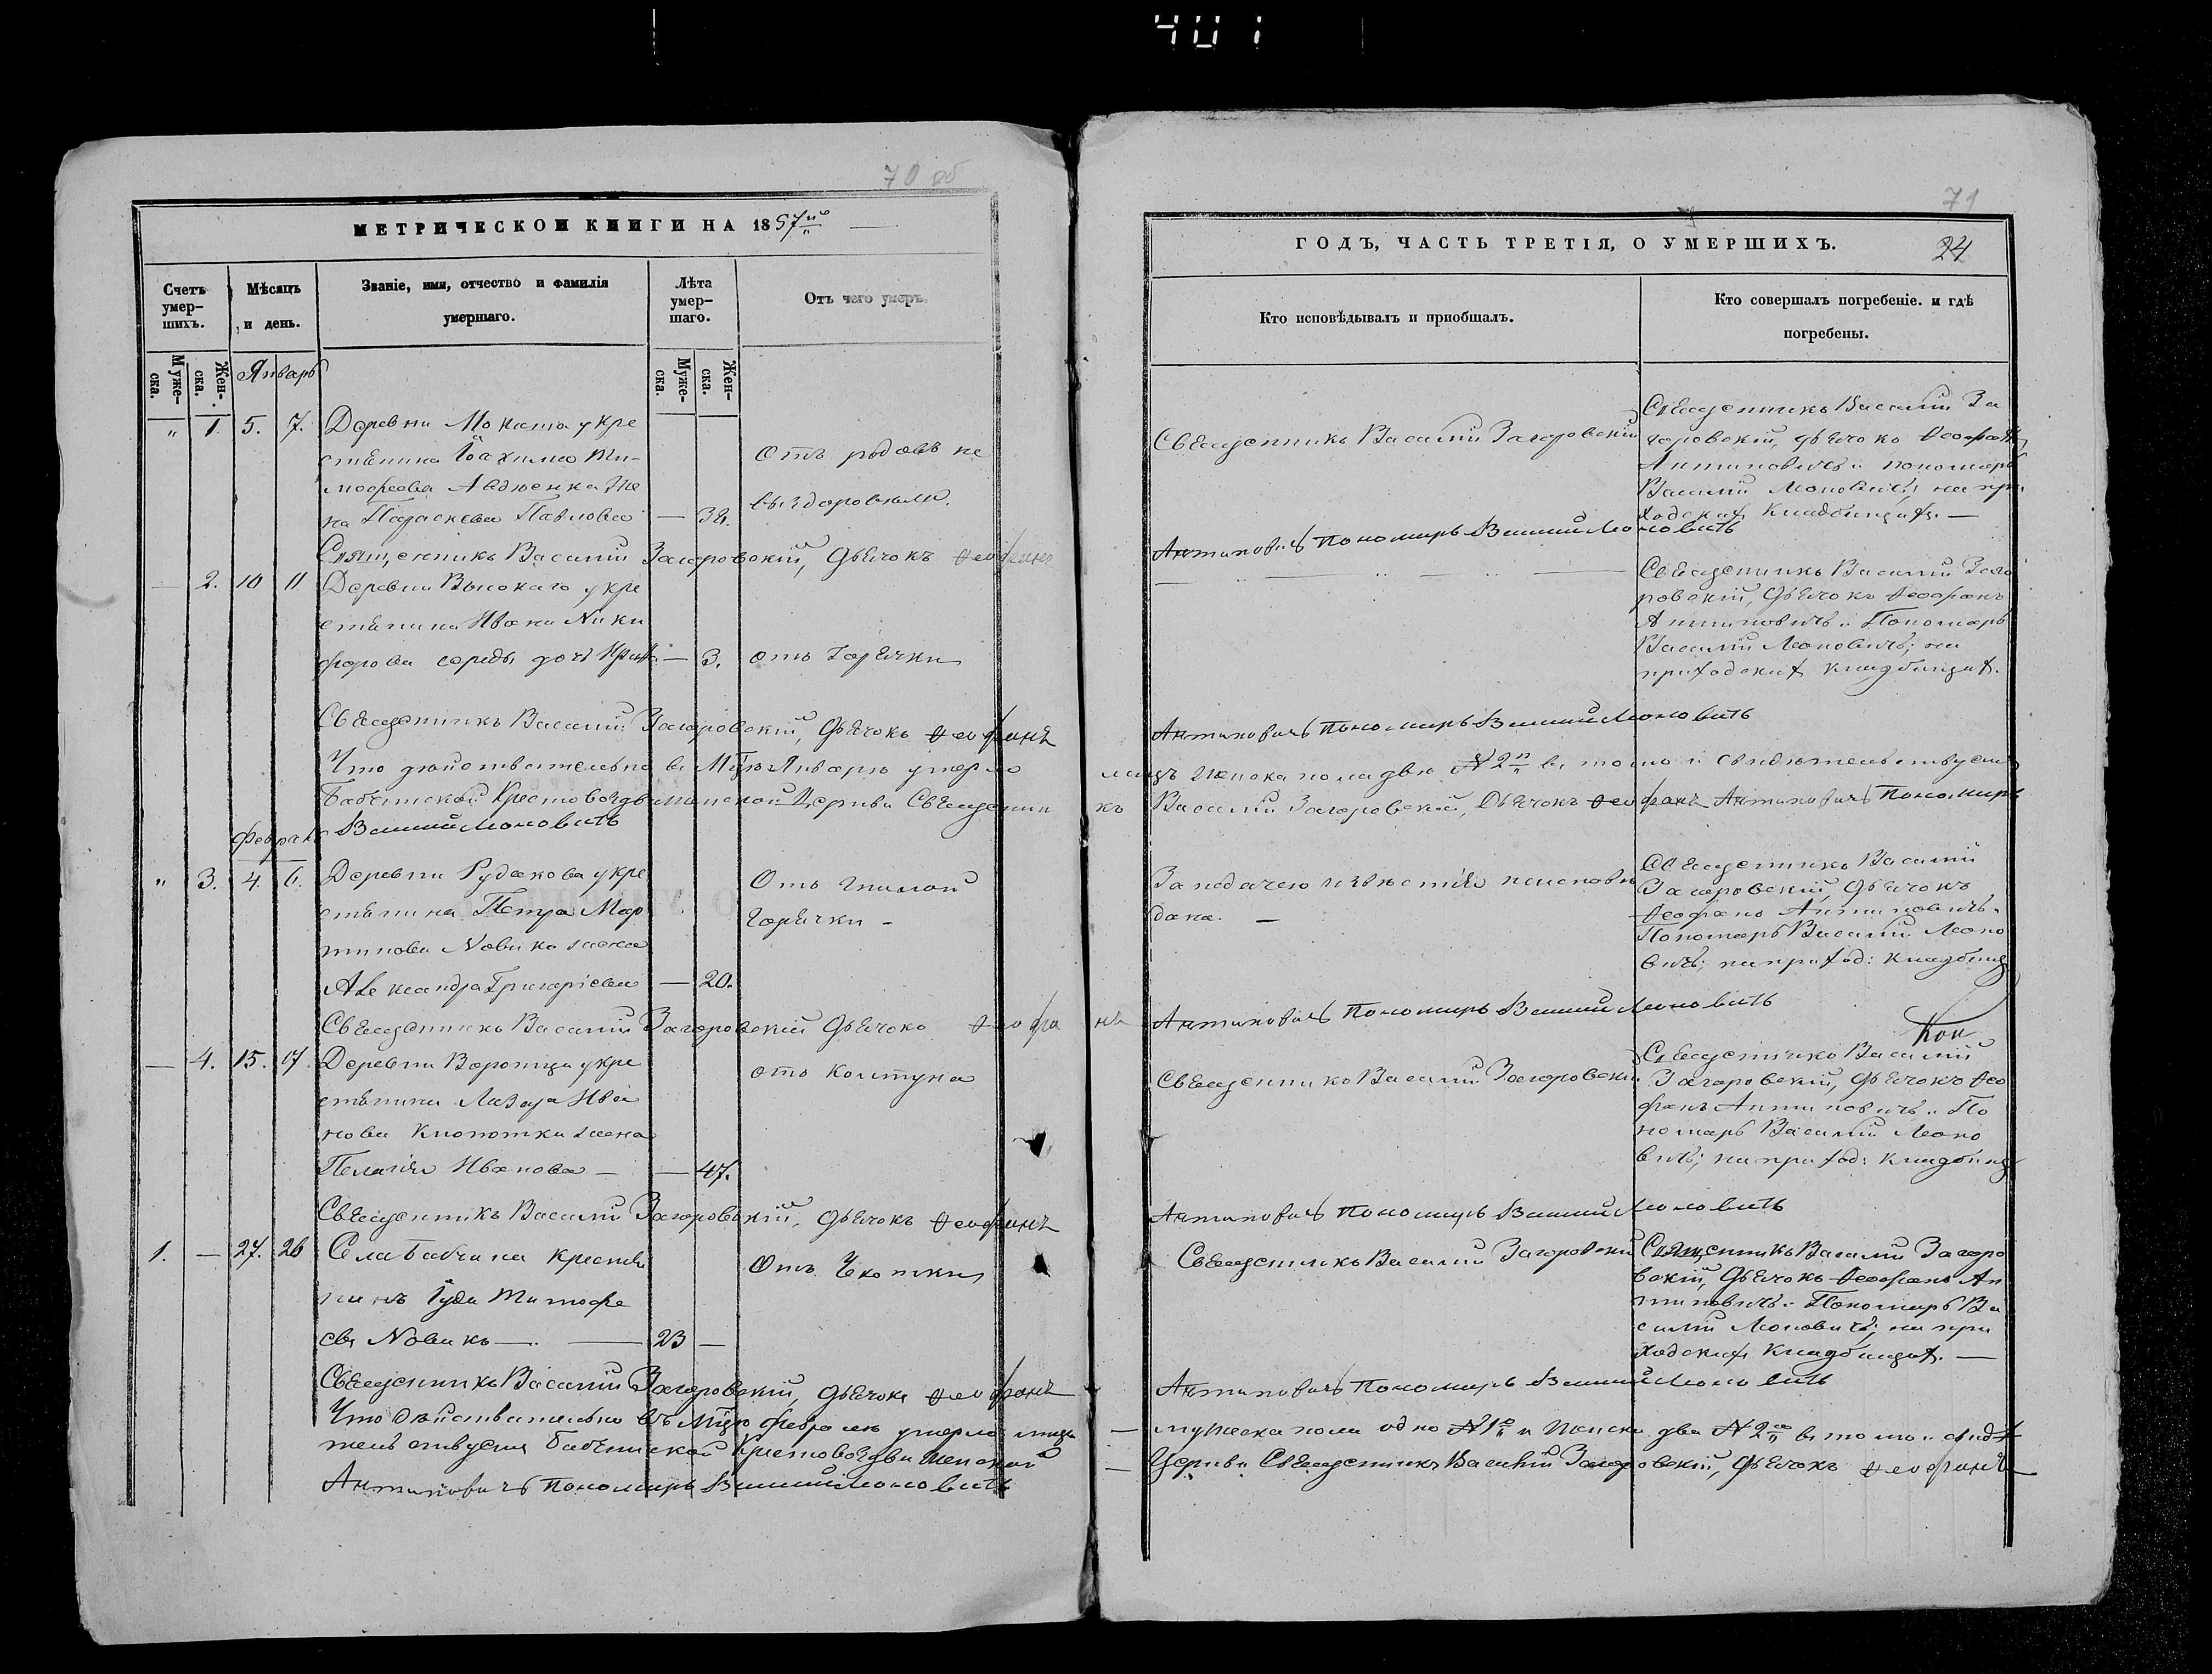 401
70 об
МЕТРИЧЕСКОЙ КНИГИ НА 1857й
Счетъ умер-
шихъ.
Мѣсяцъ
и день.
Званіе, имя, отчество и фамилія
умершаго.
Лѣта
умер-
шаго.
Отъ чего умеръ.
Муже-
ска.
Жен-
ска.
Январь
Муже-
ска.
Жен-
ска.
" 1. 5. 7. Деревни Мокиша у кре
стьянина Іоахима Ти-
мофеева Авдюенка же
на Параскева Павлова — 38.
Отъ родовъ не
выздоровела.
Священникъ Василій Загоровскій, Дьячокъ Ѳеофанъ
— 2. 10 11 Деревни Высокаго у кре
стьянина Ивана Ники
форова дочь — 3. отъ Горячки
Священникъ Василій Загоровскій, Дьячокъ Ѳеофанъ
Что действительно въ Мцѣ Январѣ умерло
Бабчинской Крестовоздвиженской Церкви Священни
Василій Моновить
Февраль
" 3. 4. 6. Деревни Рудакова у кре
стьянина Петра Мар
тинова Новика жена
Александра Григоріева — 20.
Отъ Гнилой
Горячки -
Священникъ Василій Загоровскій Дьячокъ Ѳеофа
— 4. 15. 17. Деревни Воротца у кре
стьянина Лазаря Ива
нова жена
Пелагія Иванова — — 47.
отъ Колтуна
Священникъ Василій Загоровскій, Дьячокъ Ѳеофанъ
1. — 27. 28 Села Бабчина крестья
нинъ Іуда Тимофе
евъ Новикъ — 23 —
Отъ Чахотки
Священникъ Василій Загоровскій, Дьячокъ Ѳеофанъ
Что действительно въ Мцѣ Февралѣ умерло лицъ
тельствуемъ Бабчинской Крестовоздвиженской
Антиповичъ Пономарь Василій Моновить
71
ГОДЪ, ЧАСТЬ ТРЕТІЯ, О УМЕРШИХЪ.
24
Кто исповѣдывалъ и пріобщалъ.
Кто совершалъ погребеніе. и гдѣ
погребены.
Священникъ Василій Загоровскій
Священникъ Василій За
горовскій, дьячокъ Ѳеофанъ
Антиповичъ и пономарь
Василій Моновичъ; на при
ходскихъ кладбищахъ. —
Антиповичъ Пономарь Василій Моновить
Священникъ Василій Заго
ровскій, Дьячокъ Ѳеофанъ
Антиповичъ и Пономарь
Василій Моновичъ; на
приходскихъ кладбищахъ.
Антиповичъ Пономарь Василій Моновить
лицъ женска пола две № 2й въ томъ и свидѣтельствуемъ
къ Василій Загоровскій, Дьячокъ Ѳеофанъ Антиповичъ Пономарь
За недачею извѣстія неисповѣ
дана. —
Священникъ Василій
Загоровскій, Дьячокъ
Ѳеофанъ Антиповичъ и
Пономарь Василій Моно
вичъ; на приход: кладбищ
нъ Антиповичъ Пономарь Василій Моновить
Коп
Священникъ Василій Загоровскій
Священникъ Василій
Загоровскій, Дьячокъ Ѳео
фанъ Антиповичъ и По
номарь Василій Моно
вичъ; на приход: кладбищ
Антиповичъ Пономарь Василій Моновить
Священникъ Василій Загоровскій
Священникъ Василій Загоро
вскій, Дьячокъ Ѳеофанъ Ан
типовичъ и Пономарь Ва
силій Моновичъ; на при
ходскихъ кладбищахъ. —
Антиповичъ Пономарь Василій Моновить
— мужеска пола одно № 1й и женска два № 2й въ томъ и свидѣ
— Церкви Священникъ Василій Загоровскій, Дьячокъ Ѳеофанъ